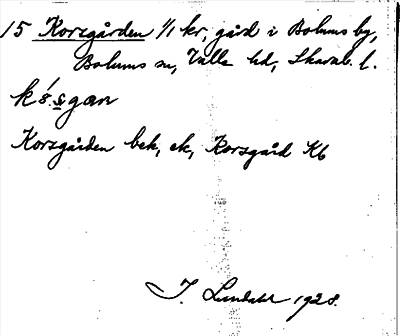 15 Korsgården 1/1 kr, gård i Bolums by,
Bolums sn, Valle hd, Skarab. l.
kɷ́ṣgan
Korsgården bek, ek, Korsgård Kb
I. Lundahl 1928.